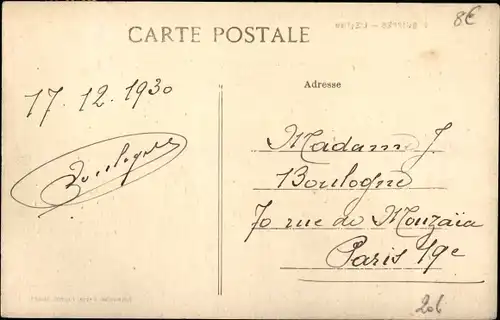 CARTE POSTALE
8€
Adresse
17.12.1930
Boulogne
Madame J.
Boulogne
70 rue de Mouzaïa
Paris 19e